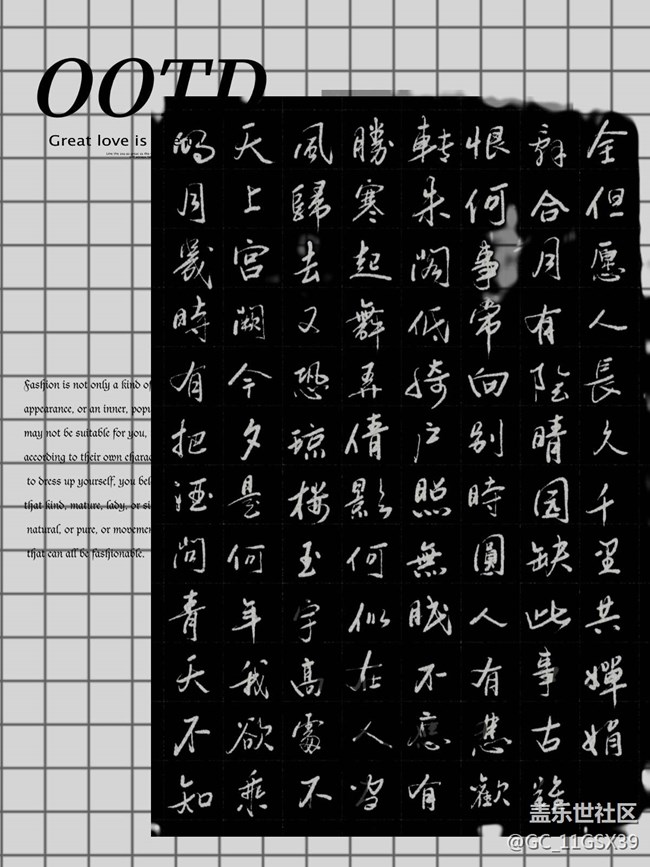 OOTD
Great love is
明月幾時有把酒問青天不知
天上宮闕今夕是何年我欲乘
風歸去又恐琼楼玉宇高處不
勝寒起舞弄倩影何似在人间
轉朱阁低绮户照無眠不應有
恨何事常向别時圓人有悲歡
離合月有陰晴园缺此事古難
全但愿人長久千里共嬋娟
Fashion is not only a kind of
appearance, or an inner, popu
may not be suitable for you,
according to their own charac
to dress up yourself, you bel
that kind, mature, lady, or si
natural, or pure, or movemen
that can all be fashionable.
盖乐世社区
@GC_11GSX39